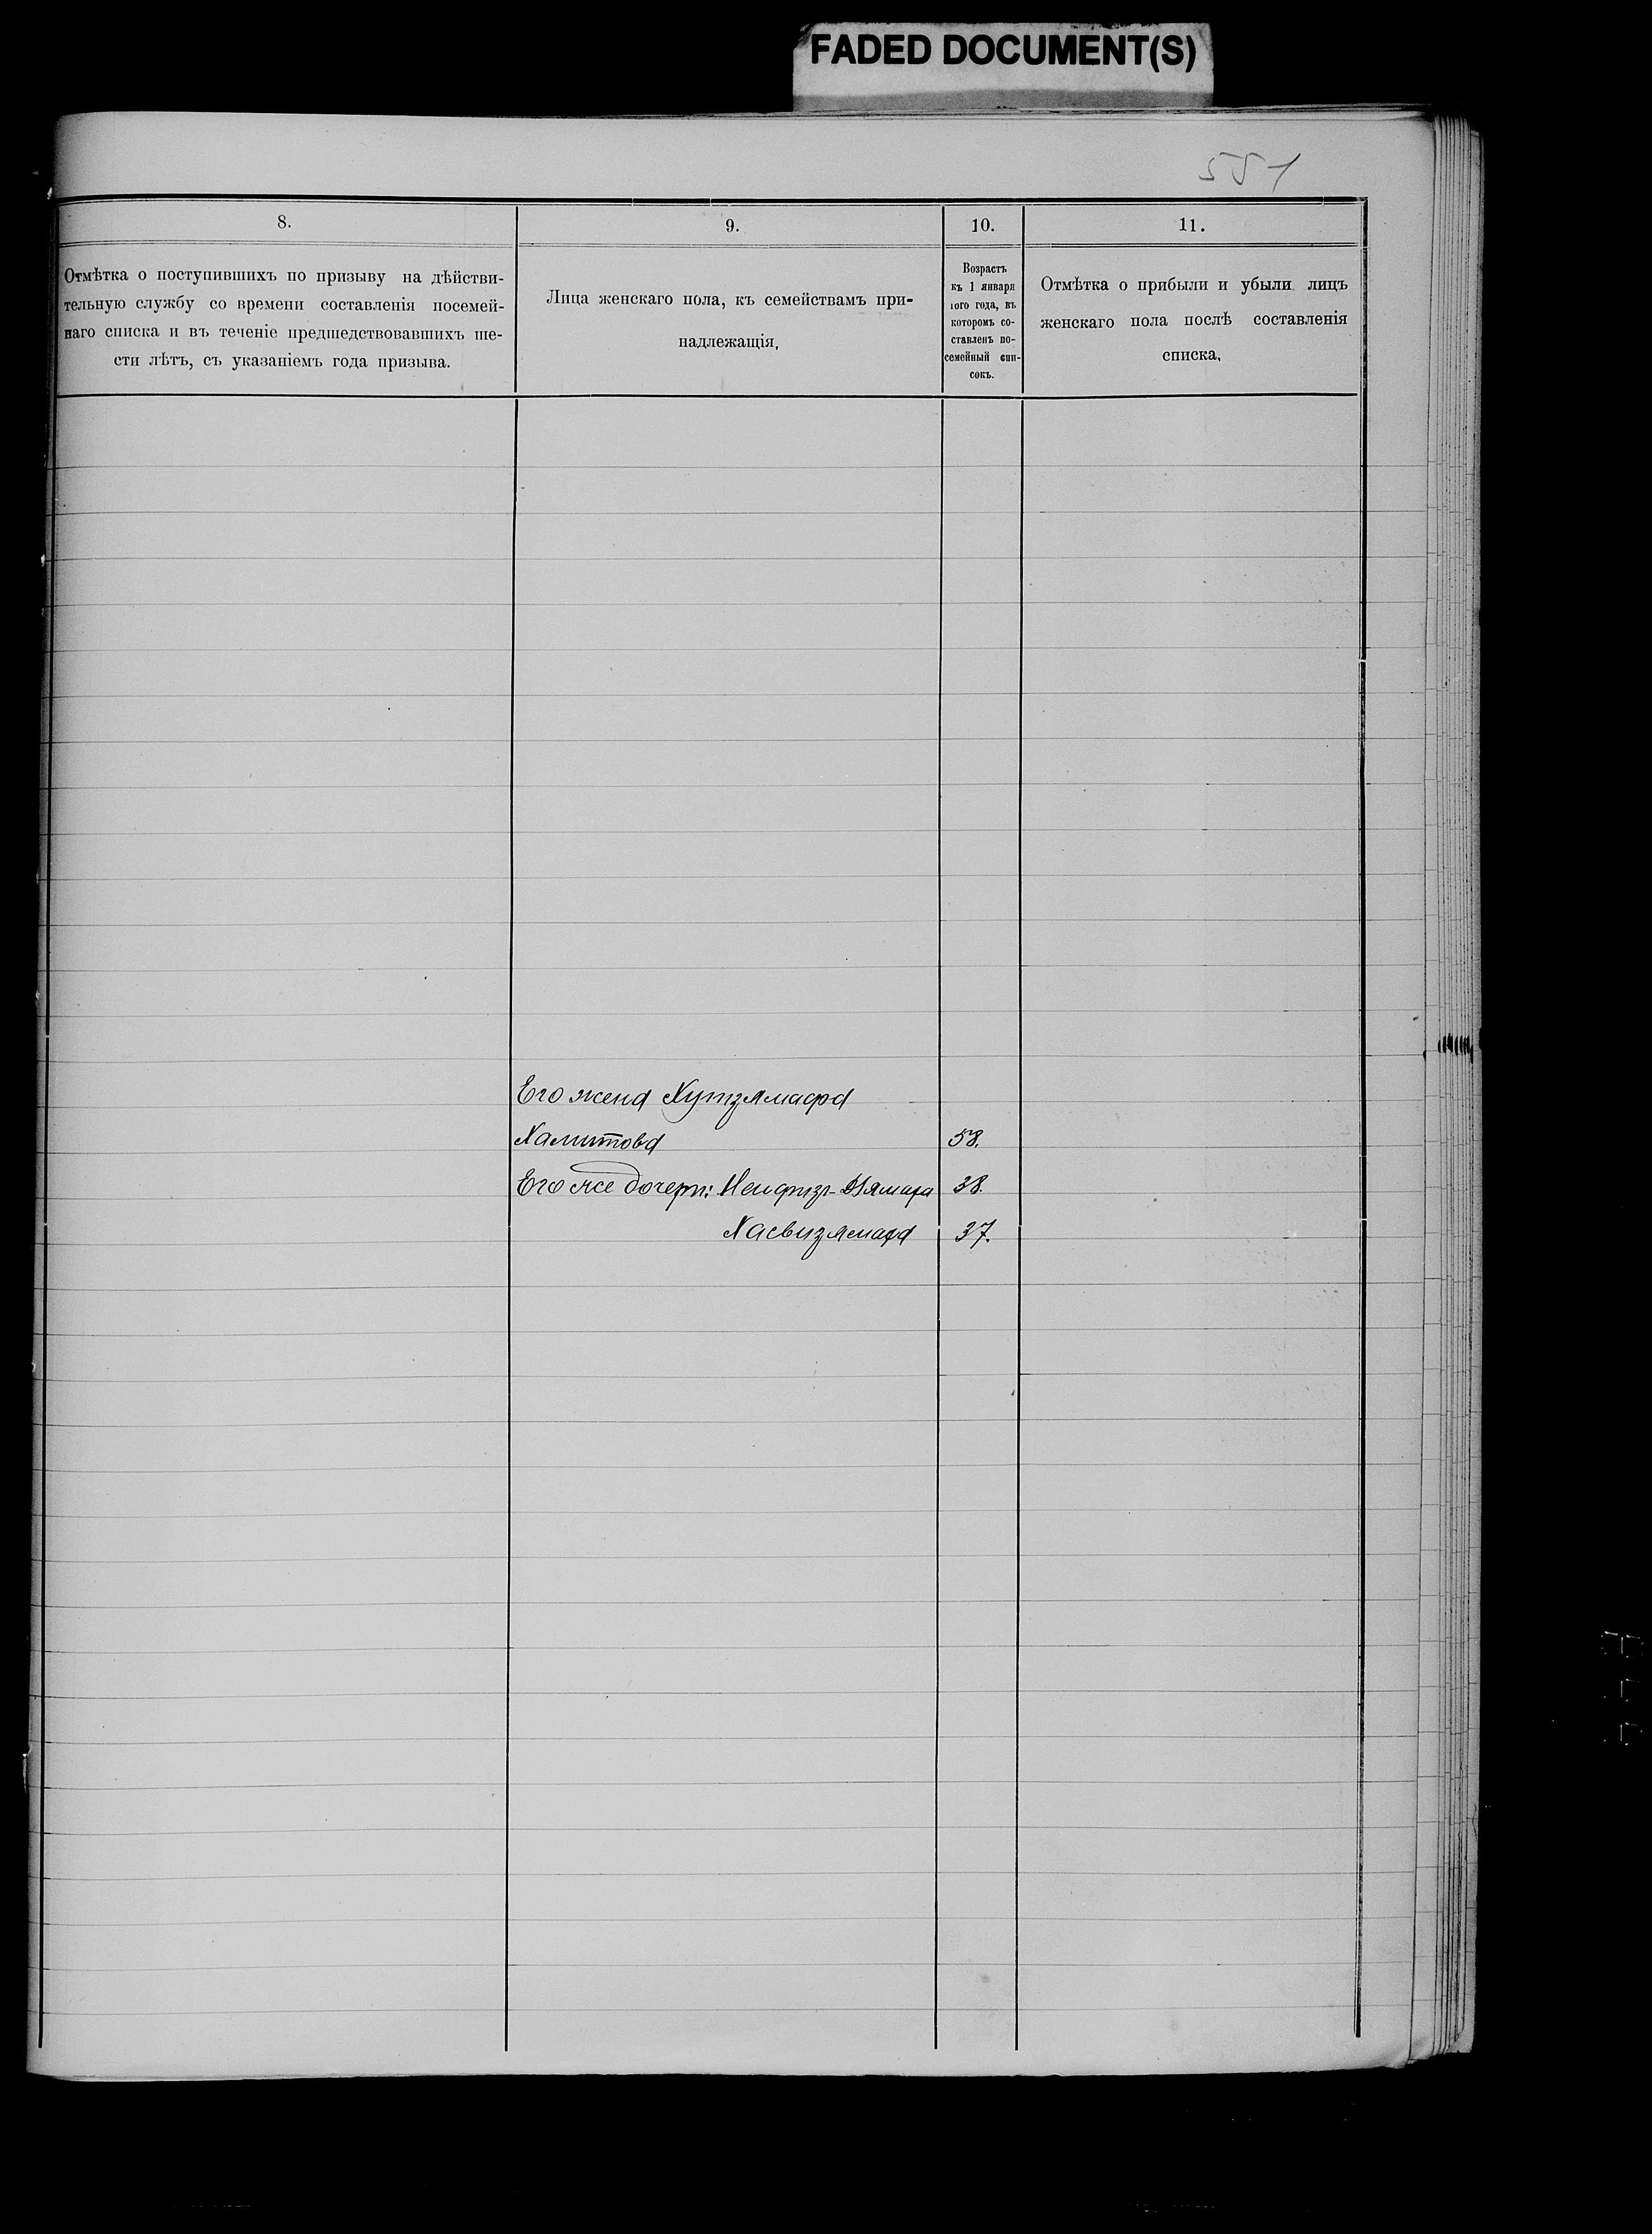 FADED DOCUMENT(S)
551
8.
9.
10.
11.
Отмѣтка о поступившихъ по призыву на дѣйстви-
тельную службу со времени составленія посемей-
наго списка и въ теченіе предшедствовавшихъ ше-
сти лѣтъ, съ указаніемъ года призыва.
Лица женскаго пола, къ семействамъ при-
надлежащія,
Возрастъ
къ 1 января
того года, въ
которомъ со-
ставленъ по-
семейный спи-
сокъ.
Отмѣтка о прибыли и убыли лицъ
женскаго пола послѣ составленія
списка,
Его жена
Хамитова 58.
Его же дочери: 38.
37.